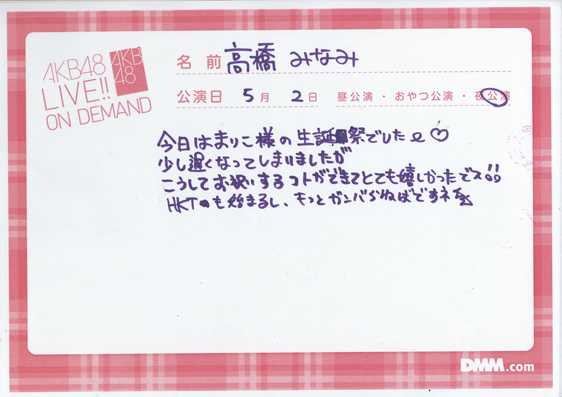 AKB48
LIVE!!
ON DEMAND
AKB
48
名 前 高橋 みなみ
公演日 5 月 2 日 昼公演・おやつ公演・夜公演
今日はまりこ様の生誕祭でした♡
少し遅くなってしまいましたが
こうしてお祝いするコトができてとても嬉しかったでス!!
HKTのも始まるし、もっとガンバらねばですネ
DMM.com